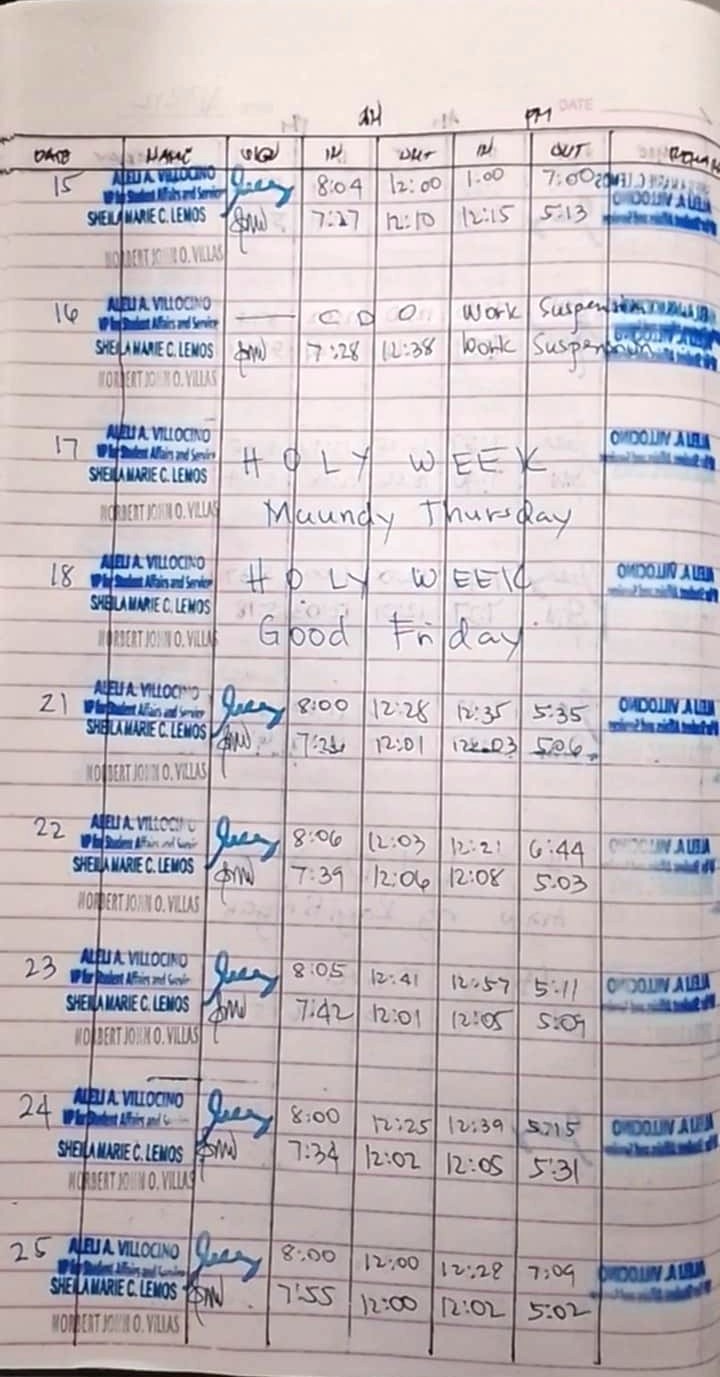 DATE
AM PM
DATE NAME SIGN IN OUT IN OUT
15 ALELI A. VILLOCINO 8:04 12:00 1:00 7:00
VP for Student Affairs and Service
SHEILA MARIE C. LEMOS 7:27 12:10 12:15 5:13
NORBERT JOHN O. VILLAS
16 ALELI A. VILLOCINO — C D O Work Suspension
VP for Student Affairs and Service
SHEILA MARIE C. LEMOS 7:28 12:38 Work Suspension
NORBERT JOHN O. VILLAS
17 ALELI A. VILLOCINO
VP for Student Affairs and Service HOLY WEEK
SHEILA MARIE C. LEMOS
NORBERT JOHN O. VILLAS Maundy Thursday
18 ALELI A. VILLOCINO
VP for Student Affairs and Service HOLY WEEK
SHEILA MARIE C. LEMOS
NORBERT JOHN O. VILLAS Good Friday
21 ALELI A. VILLOCINO 8:00 12:28 12:35 5:35
VP for Student Affairs and Service
SHEILA MARIE C. LEMOS 12:01 5:06
NORBERT JOHN O. VILLAS
22 ALELI A. VILLOCINO 8:06 12:03 12:21 6:44
VP for Student Affairs and Service
SHEILA MARIE C. LEMOS 7:39 12:06 12:08 5:03
NORBERT JOHN O. VILLAS
23 ALELI A. VILLOCINO 8:05 12:41 12:57 5:11
VP for Student Affairs and Service
SHEILA MARIE C. LEMOS 7:42 12:01 12:05 5:09
NORBERT JOHN O. VILLAS
24 ALELI A. VILLOCINO 8:00 12:25 12:39 5:15
VP for Student Affairs and
SHEILA MARIE C. LEMOS 7:34 12:02 12:05 5:31
NORBERT JOHN O. VILLAS
25 ALELI A. VILLOCINO 8:00 12:00 12:28 7:09
VP for Student Affairs and Service
SHEILA MARIE C. LEMOS 7:55 12:00 12:02 5:02
NORBERT JOHN O. VILLAS